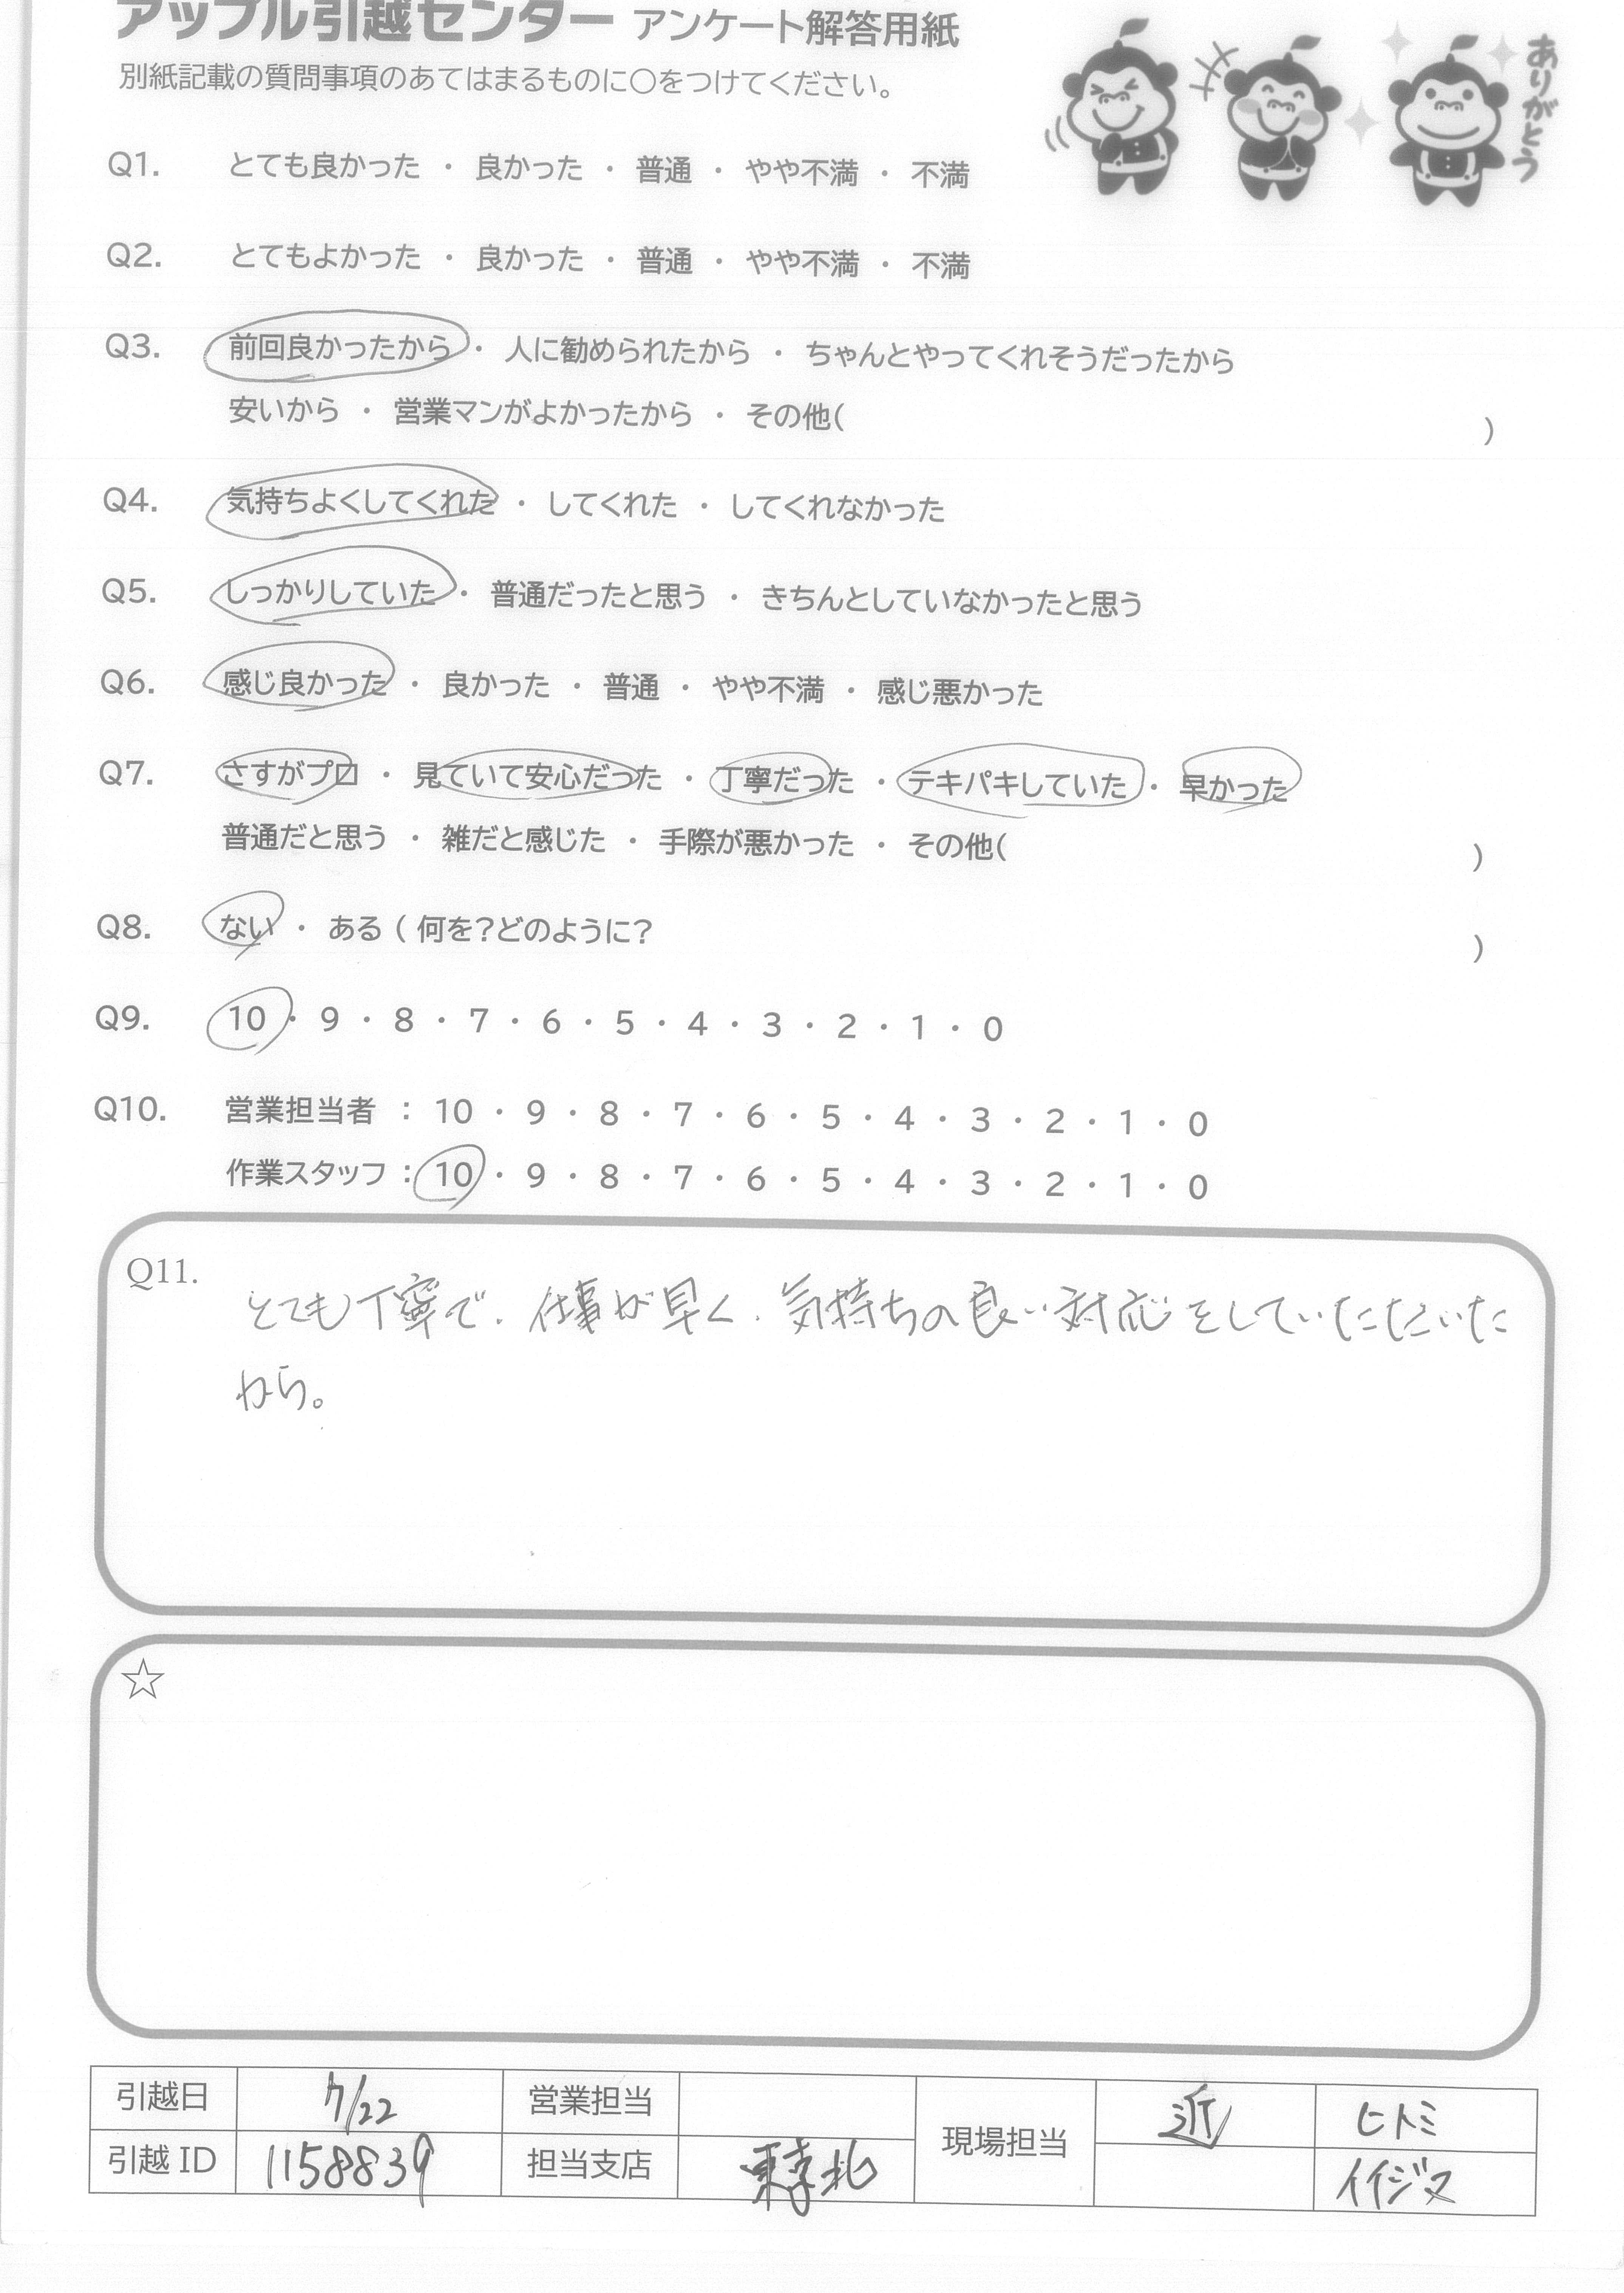 アップル引越センター アンケート解答用紙
別紙記載の質問事項のあてはまるものに○をつけてください。
ありがとう
Q1. とても良かった ・ 良かった ・ 普通 ・ やや不満 ・ 不満
Q2. とてもよかった ・ 良かった ・ 普通 ・ やや不満 ・ 不満
Q3. 前回良かったから ・ 人に勧められたから ・ ちゃんとやってくれそうだったから
安いから ・ 営業マンがよかったから ・ その他( )
Q4. 気持ちよくしてくれた ・ してくれた ・ してくれなかった
Q5. しっかりしていた ・ 普通だったと思う ・ きちんとしていなかったと思う
Q6. 感じ良かった ・ 良かった ・ 普通 ・ やや不満 ・ 感じ悪かった
Q7. さすがプロ ・ 見ていて安心だった ・ 丁寧だった ・ テキパキしていた ・ 早かった
普通だと思う ・ 雑だと感じた ・ 手際が悪かった ・ その他( )
Q8. ない ・ ある ( 何を?どのように? )
Q9. 10 ・ 9 ・ 8 ・ 7 ・ 6 ・ 5 ・ 4 ・ 3 ・ 2 ・ 1 ・ 0
Q10. 営業担当者 : 10 ・ 9 ・ 8 ・ 7 ・ 6 ・ 5 ・ 4 ・ 3 ・ 2 ・ 1 ・ 0
作業スタッフ : 10 ・ 9 ・ 8 ・ 7 ・ 6 ・ 5 ・ 4 ・ 3 ・ 2 ・ 1 ・ 0
Q11. とても丁寧で、仕事が早く、気持ちの良い対応をしていただいた
から。
☆
引越日 7/22 営業担当 現場担当 近 ヒトミ
引越 ID 1158839 担当支店 イイジマ